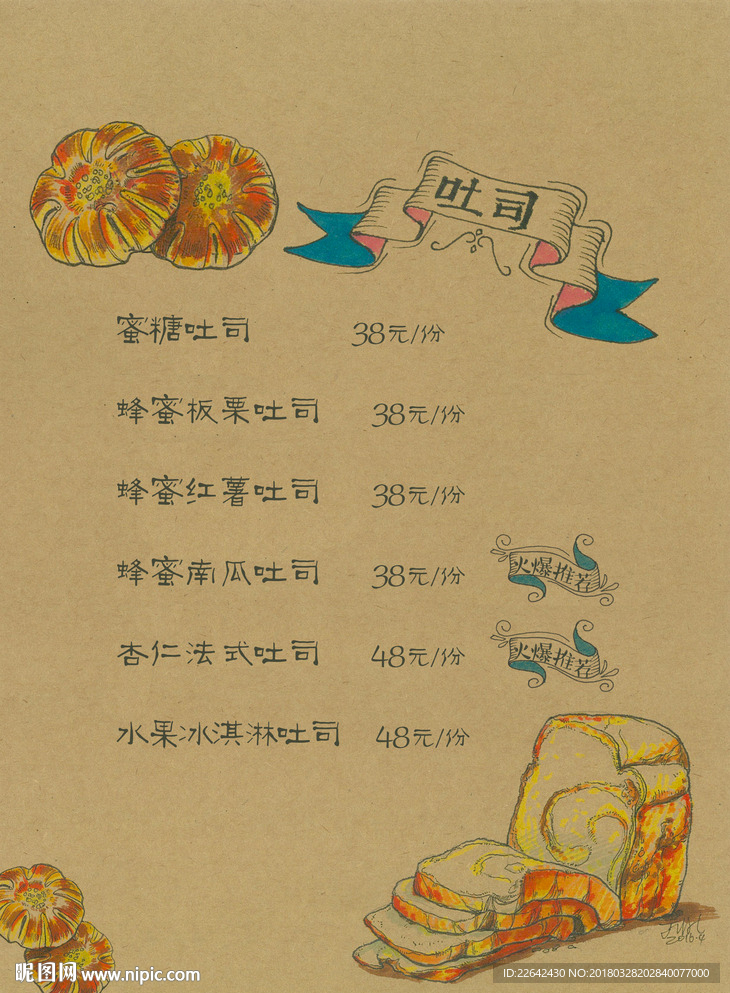 吐司
蜜糖吐司 38元/份
蜂蜜板栗吐司 38元/份
蜂蜜红薯吐司 38元/份
蜂蜜南瓜吐司 38元/份 火爆推荐
杏仁法式吐司 48元/份 火爆推荐
水果冰淇淋吐司 48元/份
2016.4
昵图网 www.nipic.com
ID:22642430 NO:20180328202840077000